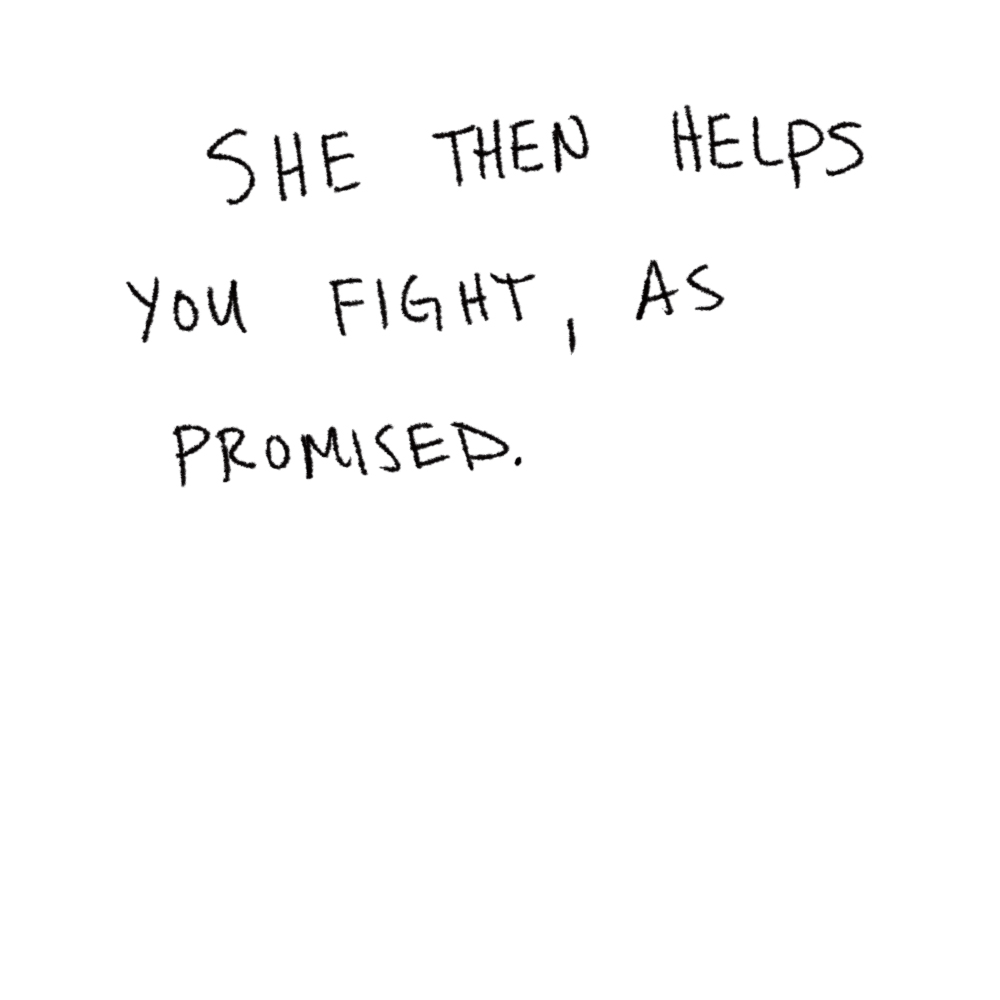 SHE THEN HELPS
YOU FIGHT, AS
PROMISED.